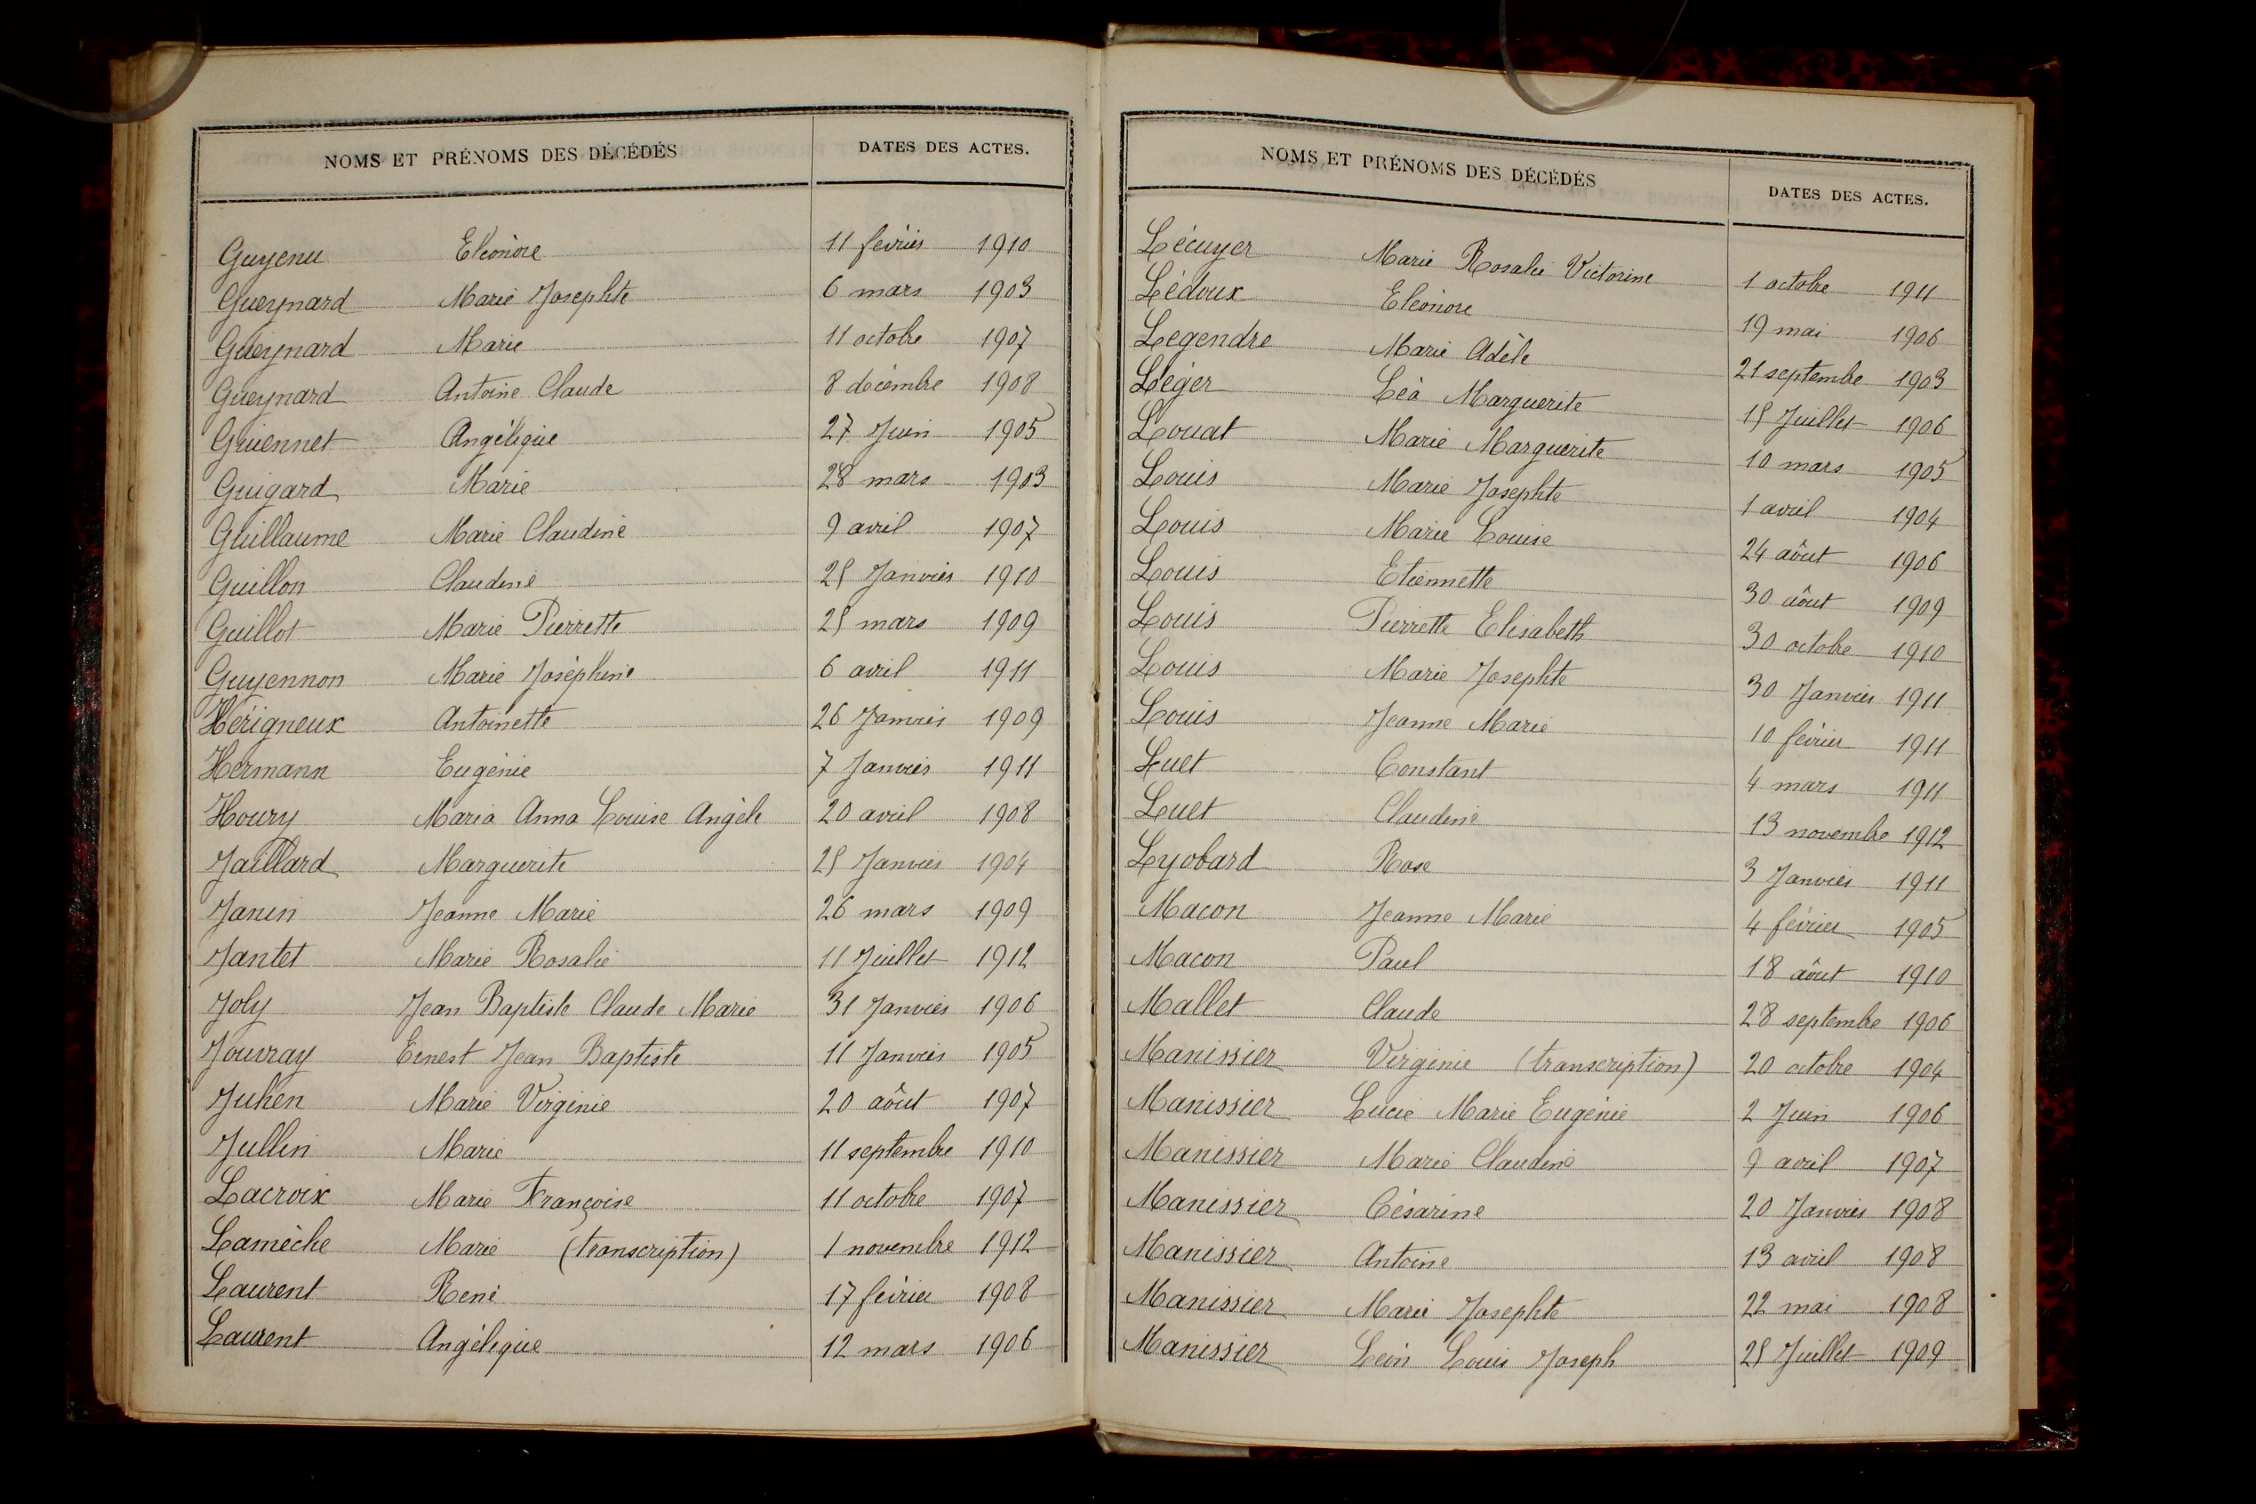 NOMS ET PRÉNOMS DES DÉCÉDÉS DATES DES ACTES.
Guyenu Eléonore 11 février 1910
Gueynard Marie Josephte 6 mars 1903
Gueynard Marie 11 octobre 1907
Gueynard Antoine Claude 8 décembre 1908
Guiennet Angélique 27 Juin 1905
Guigard Marie 28 mars 1903
Guillaume Marie Claudine 9 avril 1907
Guillon Claudine 25 Janvier 1910
Guillot Marie Pierrette 25 mars 1909
Guyennon Marie Joséphine 6 avril 1911
Hérigneux Antoinette 26 Janvier 1909
Hermann Eugénie 7 Janvier 1911
Houry Maria Anna Louise Angèle 20 avril 1908
Jaillard Marguerite 25 Janvier 1904
Janin Jeanne Marie 26 mars 1909
Jantet Marie Rosalie 11 Juillet 1912
Joly Jean Baptiste Claude Marie 31 Janvier 1906
Jouvray Ernest Jean Baptiste 11 Janvier 1905
Juhen Marie Virginie 20 aôut 1907
Jullin Marie 11 septembre 1910
Lacroix Marie Françoise 11 octobre 1907
Lamèche Marie (transcription) 1 novembre 1912
Laurent René 17 février 1908
Laurent Angélique 12 mars 1906
NOMS ET PRÉNOMS DES DÉCÉDÉS DATES DES ACTES.
Lécuyer Marie Rosalie Victorine 1 octobre 1911
Lédoux Eléonore 19 mai 1906
Legendre Marie Adèle 21 septembre 1903
Léger Léa Marguerite 15 Juillet 1906
Louat Marie Marguerite 10 mars 1905
Louis Marie Josephte 1 avril 1904
Louis Marie Louise 24 aôut 1906
Louis Etiennette 30 aôut 1909
Louis Pierrette Elisabeth 30 octobre 1910
Louis Marie Josephte 30 Janvier 1911
Louis Jeanne Marie 10 février 1911
Luet Constant 4 mars 1911
Luet Claudine 13 novembre 1912
Lyobard Rose 3 Janvier 1911
Macon Jeanne Marie 4 février 1905
Macon Paul 18 aôut 1910
Mallet Claude 28 septembre 1906
Manissier Virginie (transcription) 20 octobre 1904
Manissier Lucie Marie Eugénie 2 Juin 1906
Manissier Marie Claudine 9 avril 1907
Manissier Césarine 20 Janvier 1908
Manissier Antoine 13 avril 1908
Manissier Marie Josephte 22 mai 1908
Manissier Léon Louis Joseph 25 Juillet 1909